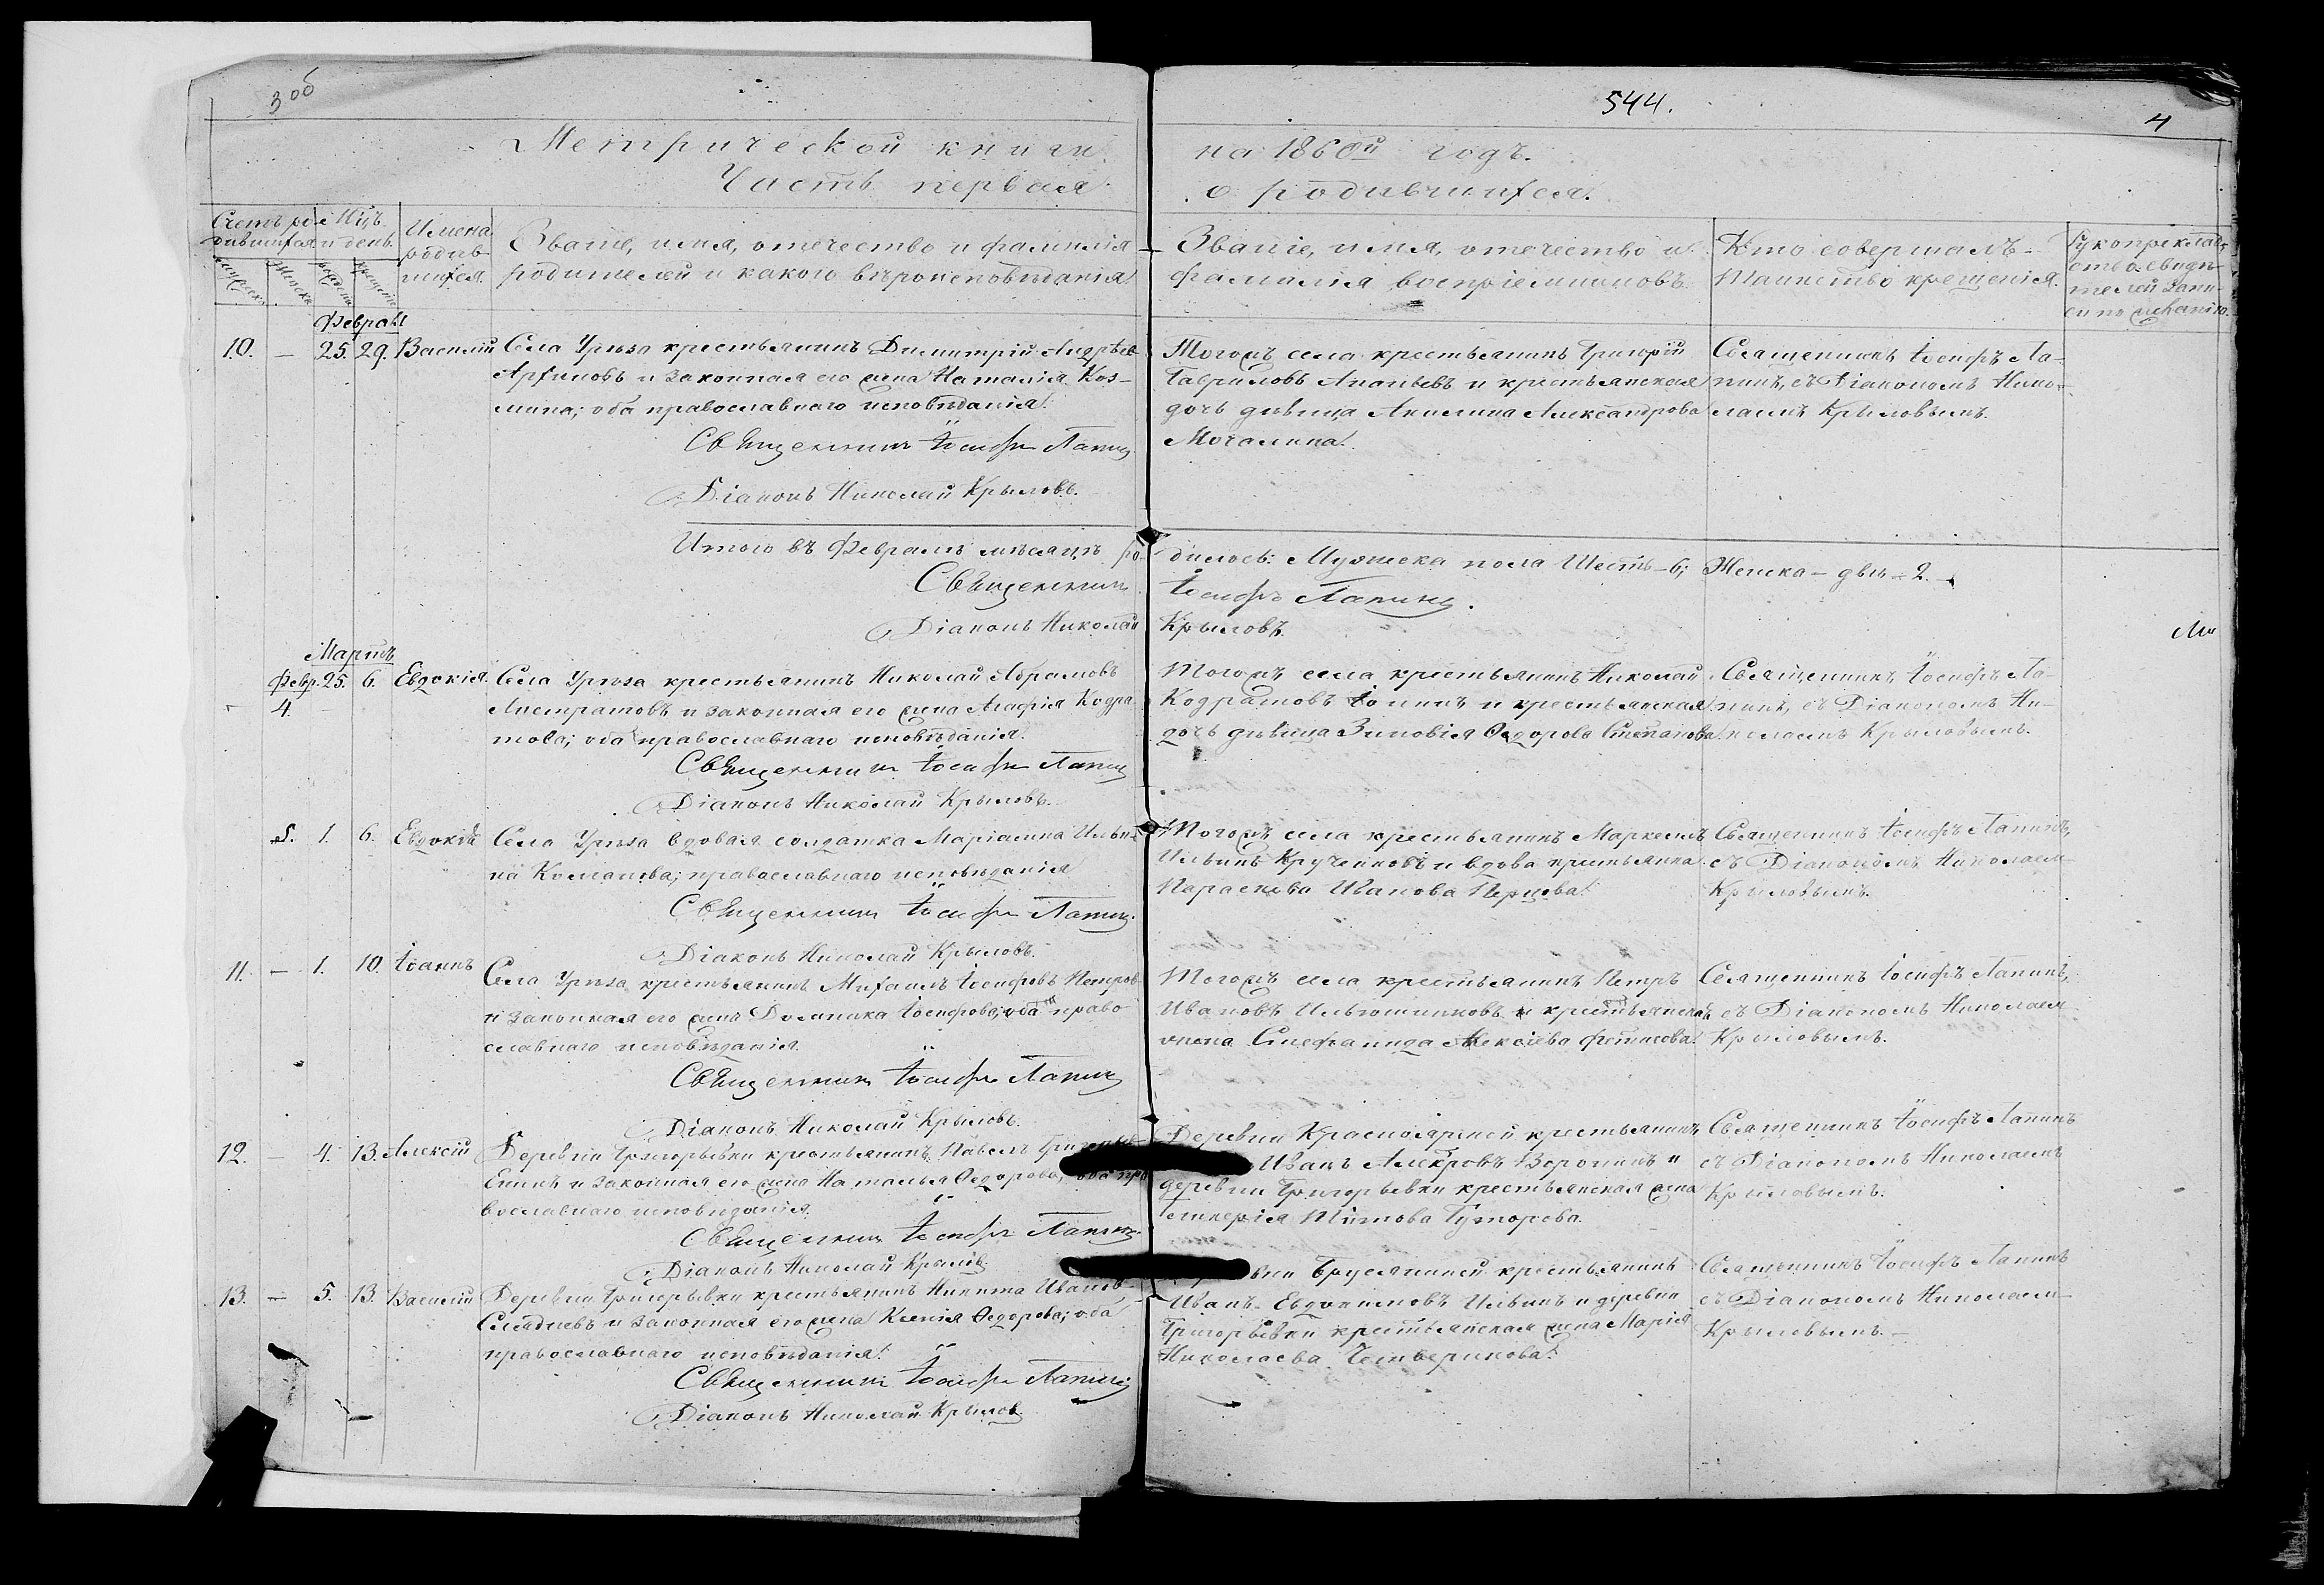 3 об
544.
4
Метрической книги
на 1860й годъ.
Часть первая
о родившихся.
Счетъ ро-
дившихся
Мцъ
и день
Имена
родив-
шихся.
Званіе, имя, отечество и фамилія
родителей и какого вѣроисповѣданія
Званіе, имя, отечество и
фамилія воспріемниковъ.
Кто совершалъ
Таинство крещенія.
Рукоприклад-
ство свидѣ-
телей запи-
си по желанію.
Феврал
10. — 25. 29. Василій
Села Урѣза крестьянинъ Димитрій Андрѣевъ
Архиповъ и законная его жена Наталія Коз-
мина; оба православнаго исповѣданія.
Священникъ Іосифъ Лапинъ
Діаконъ Николай Крыловъ.
Тогожъ села крестьянинъ Григорій
Гавриловъ Ананьевъ и крестьянская
дочь дѣвица Акилина Александрова
Мочалина.
Священникъ Іосифъ Ла-
пинъ, съ Діакономъ Нико-
лаемъ Крыловымъ.
Итого въ Февралѣ мѣсяцѣ ро-
дилось: Мужеска пола Шесть – 6; Женска – двѣ – 2.
Священникъ Іосифъ Лапинъ.
Діаконъ Николай Крыловъ.
Мартъ
Февр. 25. 6. Евдокія.
4.
Села Урѣза крестьянинъ Николай Абрамовъ
Листратовъ и законная его жена Агафія Кодра-
това; оба православнаго исповѣданія.
Священникъ Іосифъ Лапинъ
Діаконъ Николай Крыловъ.
Тогожъ села крестьянинъ Николай
Кодратовъ Іонинъ и крестьянская
дочь дѣвица Зиновія Ѳедорова Степанова.
Священникъ Іосифъ Ла-
пинъ, съ Діакономъ Ни-
колаемъ Крыловымъ.
5. 1. 6. Евдокія
Села Урѣза вдовая солдатка Маріамна Ильи-
на православнаго исповѣданія
Священникъ Іосифъ Лапинъ.
Діаконъ Николай Крыловъ.
Тогожъ села крестьянинъ Маркеллъ
Ильинъ и вдова крестьянка
Параскева Иванова Перцева.
Священникъ Іосифъ Лапинъ,
съ Діакономъ Николаем
Крыловымъ.
11. — 1. 10. Іоаннъ
Села Урѣза крестьянинъ Михаилъ Іосифовъ Петров
и законная его жена Домника Іосифова; оба право-
славнаго исповѣданія.
Священникъ Іосифъ Лапинъ
Діаконъ Николай Крыловъ.
Тогожъ села крестьянинъ Петръ
Ивановъ Ильюшинковъ и крестьянская
жена Стефанида Алексіева Фетисова.
Священникъ Іосифъ Лапинъ,
съ Діакономъ Николаем
Крыловымъ.
12. — 4. 13. Алексій
Деревни Григорьевки крестьянинъ Павелъ
Енинъ и законная его жена Наталья Ѳедорова; оба пра-
вославнаго исповѣданія.
Священникъ Іосифъ Лапинъ.
Діаконъ Николай Крылов.
Деревни Красноярской крестьянинъ
Иванъ Воронинъ и
деревни Григорьевки крестьянская жена
Гликерія Титова Гуторова.
Священникъ Іосифъ Лапинъ
съ Діакономъ Николаемъ
Крыловымъ.
13. — 5. 13. Василій
Деревни Григорьевки крестьянинъ Никита Иванов
и законная его жена Ксенія Ѳедорова; оба
православнаго исповѣданія.
Священникъ Іосифъ Лапинъ
Діаконъ Николай Крылов
крестьянинъ
Иванъ Евдокимовъ Ильинъ и деревни
Григорьевки крестьянская жена Марія
Николаева Четверикова.
Священникъ Іосифъ Лапинъ
съ Діакономъ Николаем
Крыловымъ.